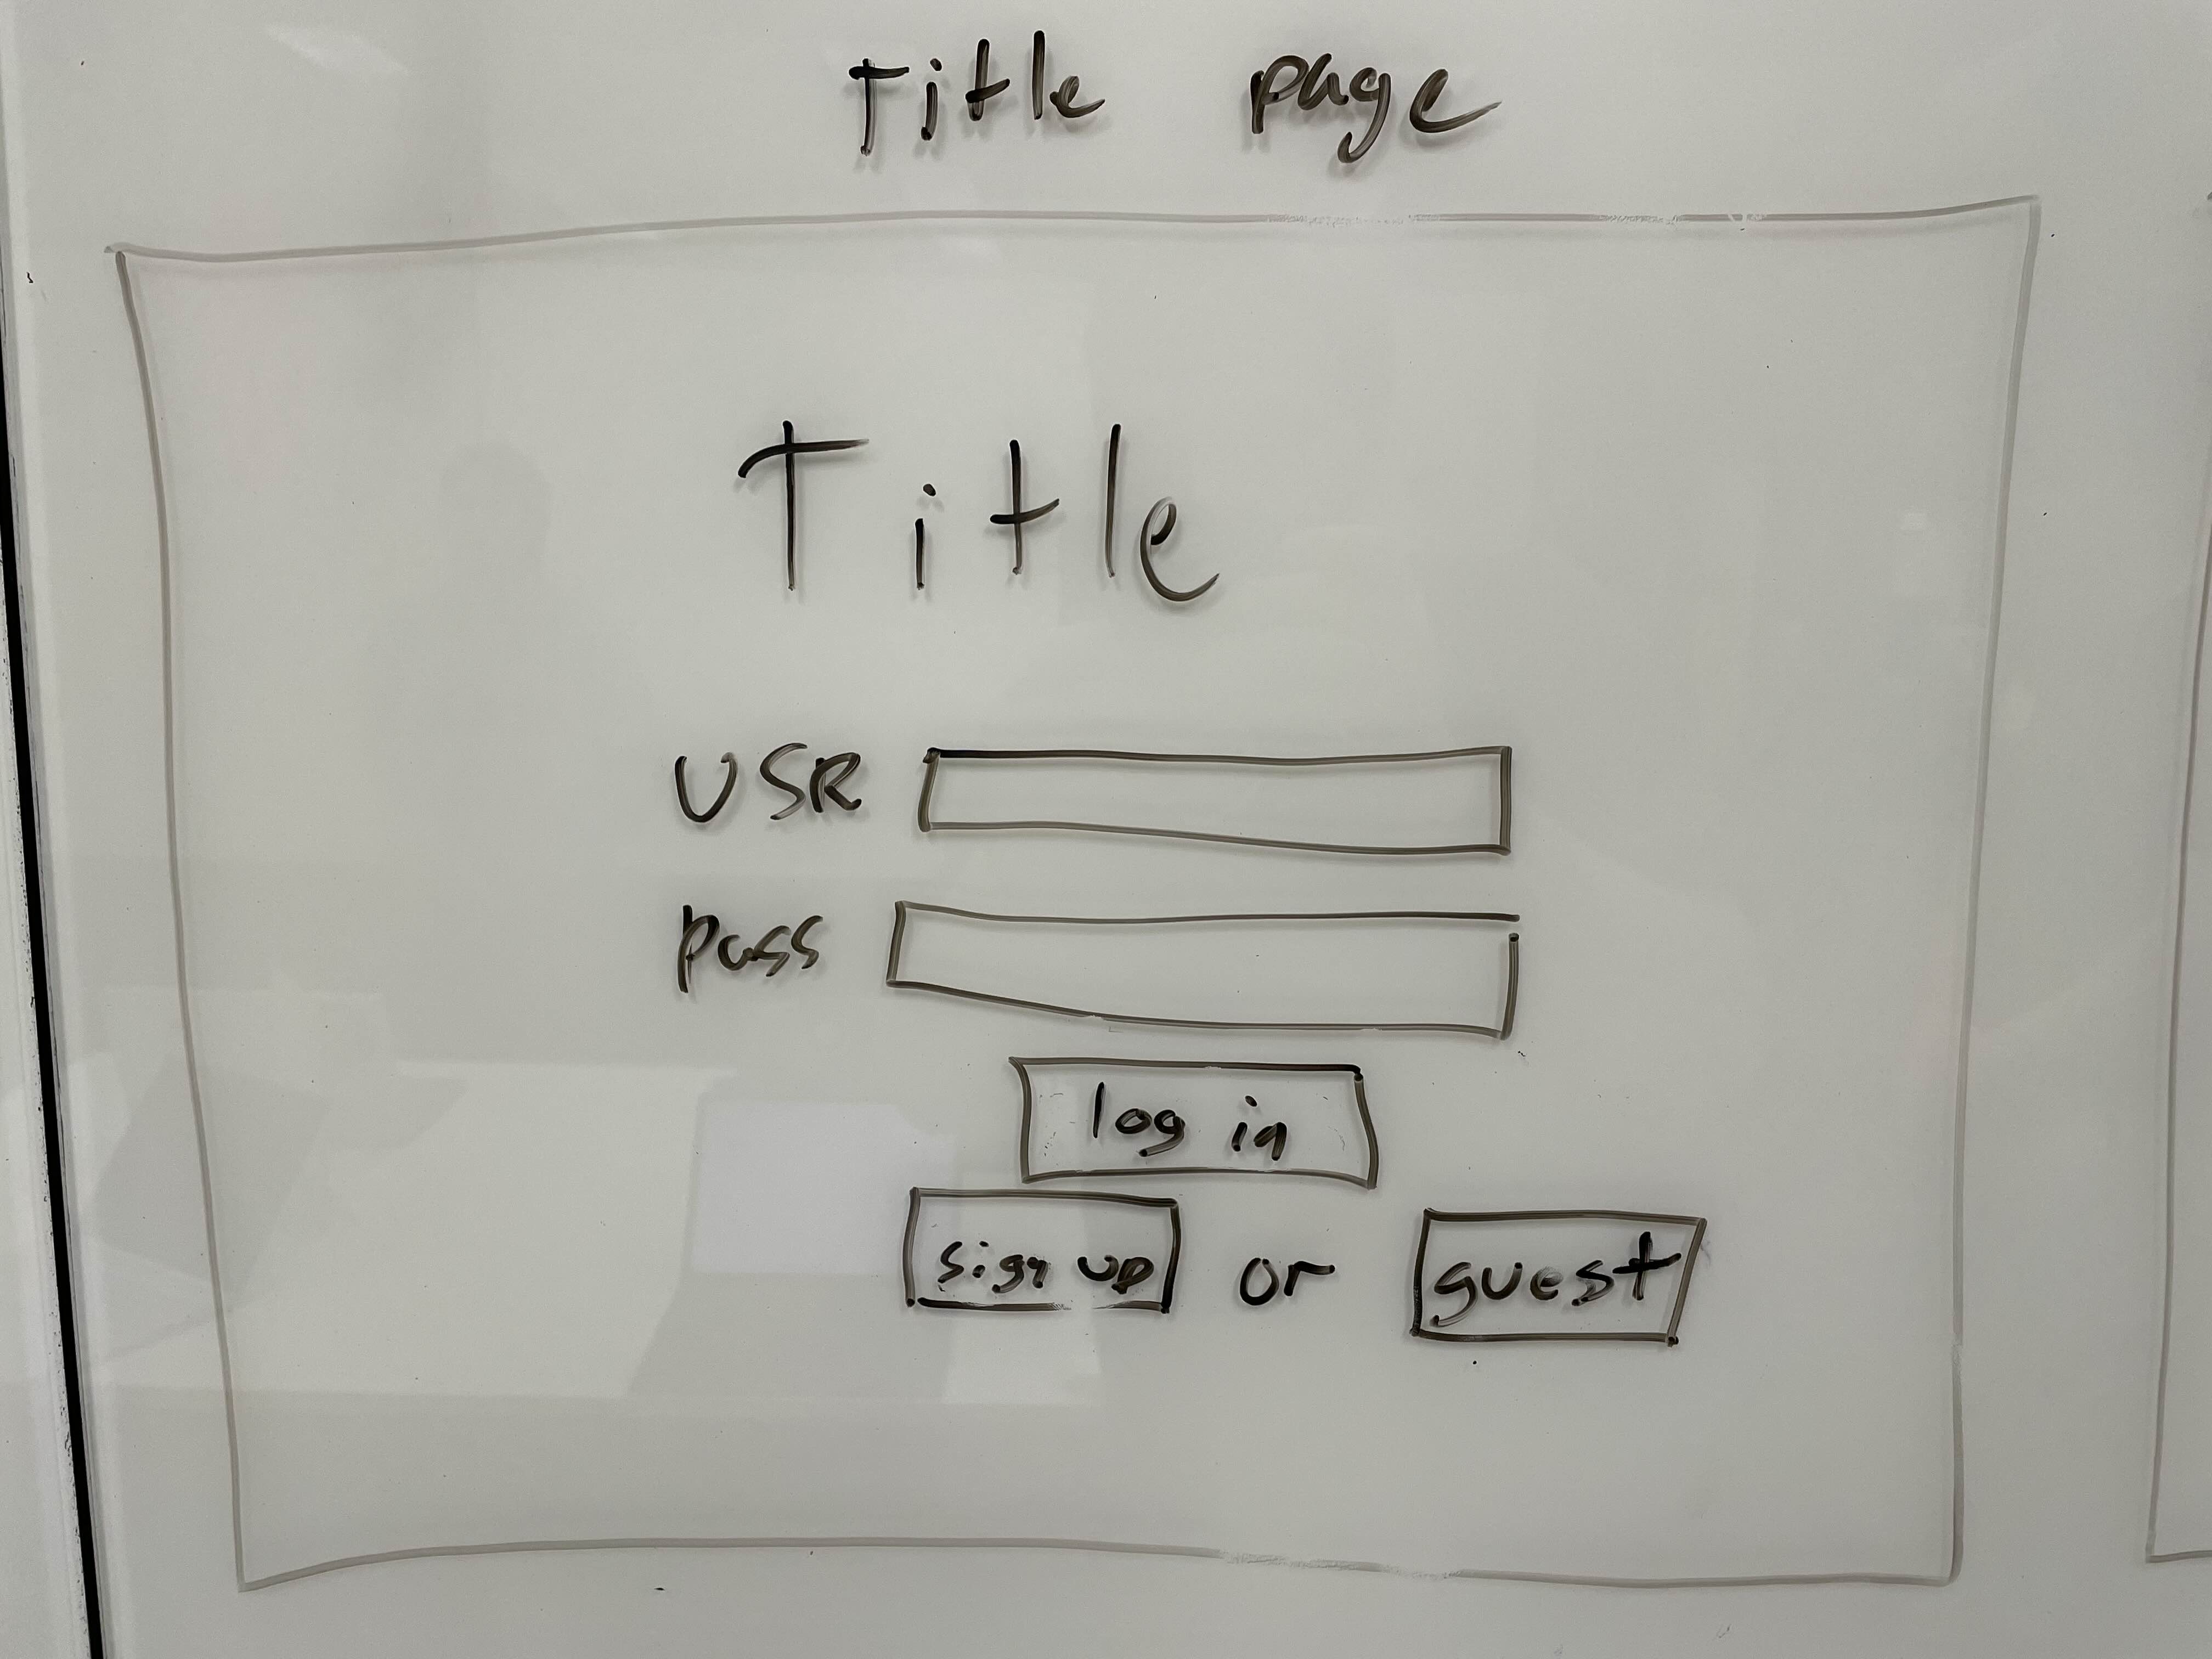 Title page
Title
USR
pass
log in
sign up or guest